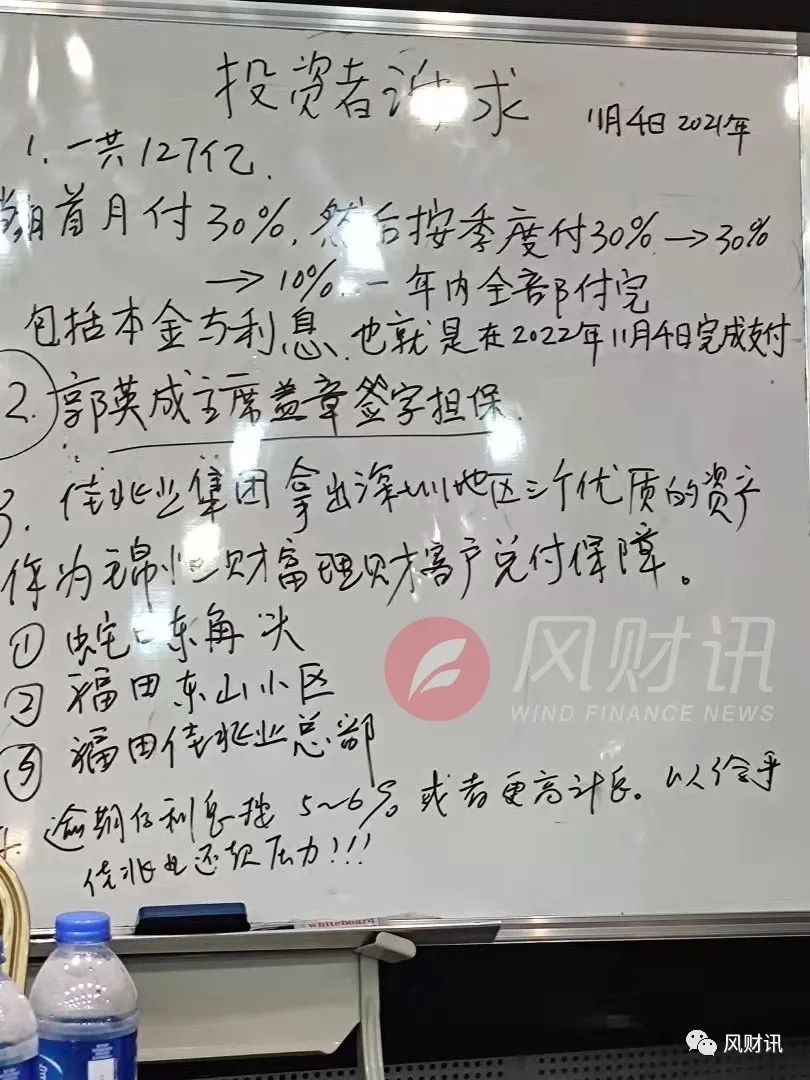 投资者诉求
11月4日 2021年
1. 一共127亿.
当期首月付30%. 然后按季度付30% → 30%
→ 10%. 一年内全部付完
包括本金与利息. 也就是在2022年11月4日完成支付
2. 郭英成主席盖章签字担保.
3. 佳兆业集团拿出深圳地区三个优质的资产
作为锦恒财富理财客户兑付保障。
① 蛇口东角头
② 福田东山小区
③ 福田佳兆业总部
4. 逾期后利息按 5~6% 或者更高计息。以给予
佳兆业还款压力!!!
风财讯
WIND FINANCE NEWS
whiteboard
风财讯